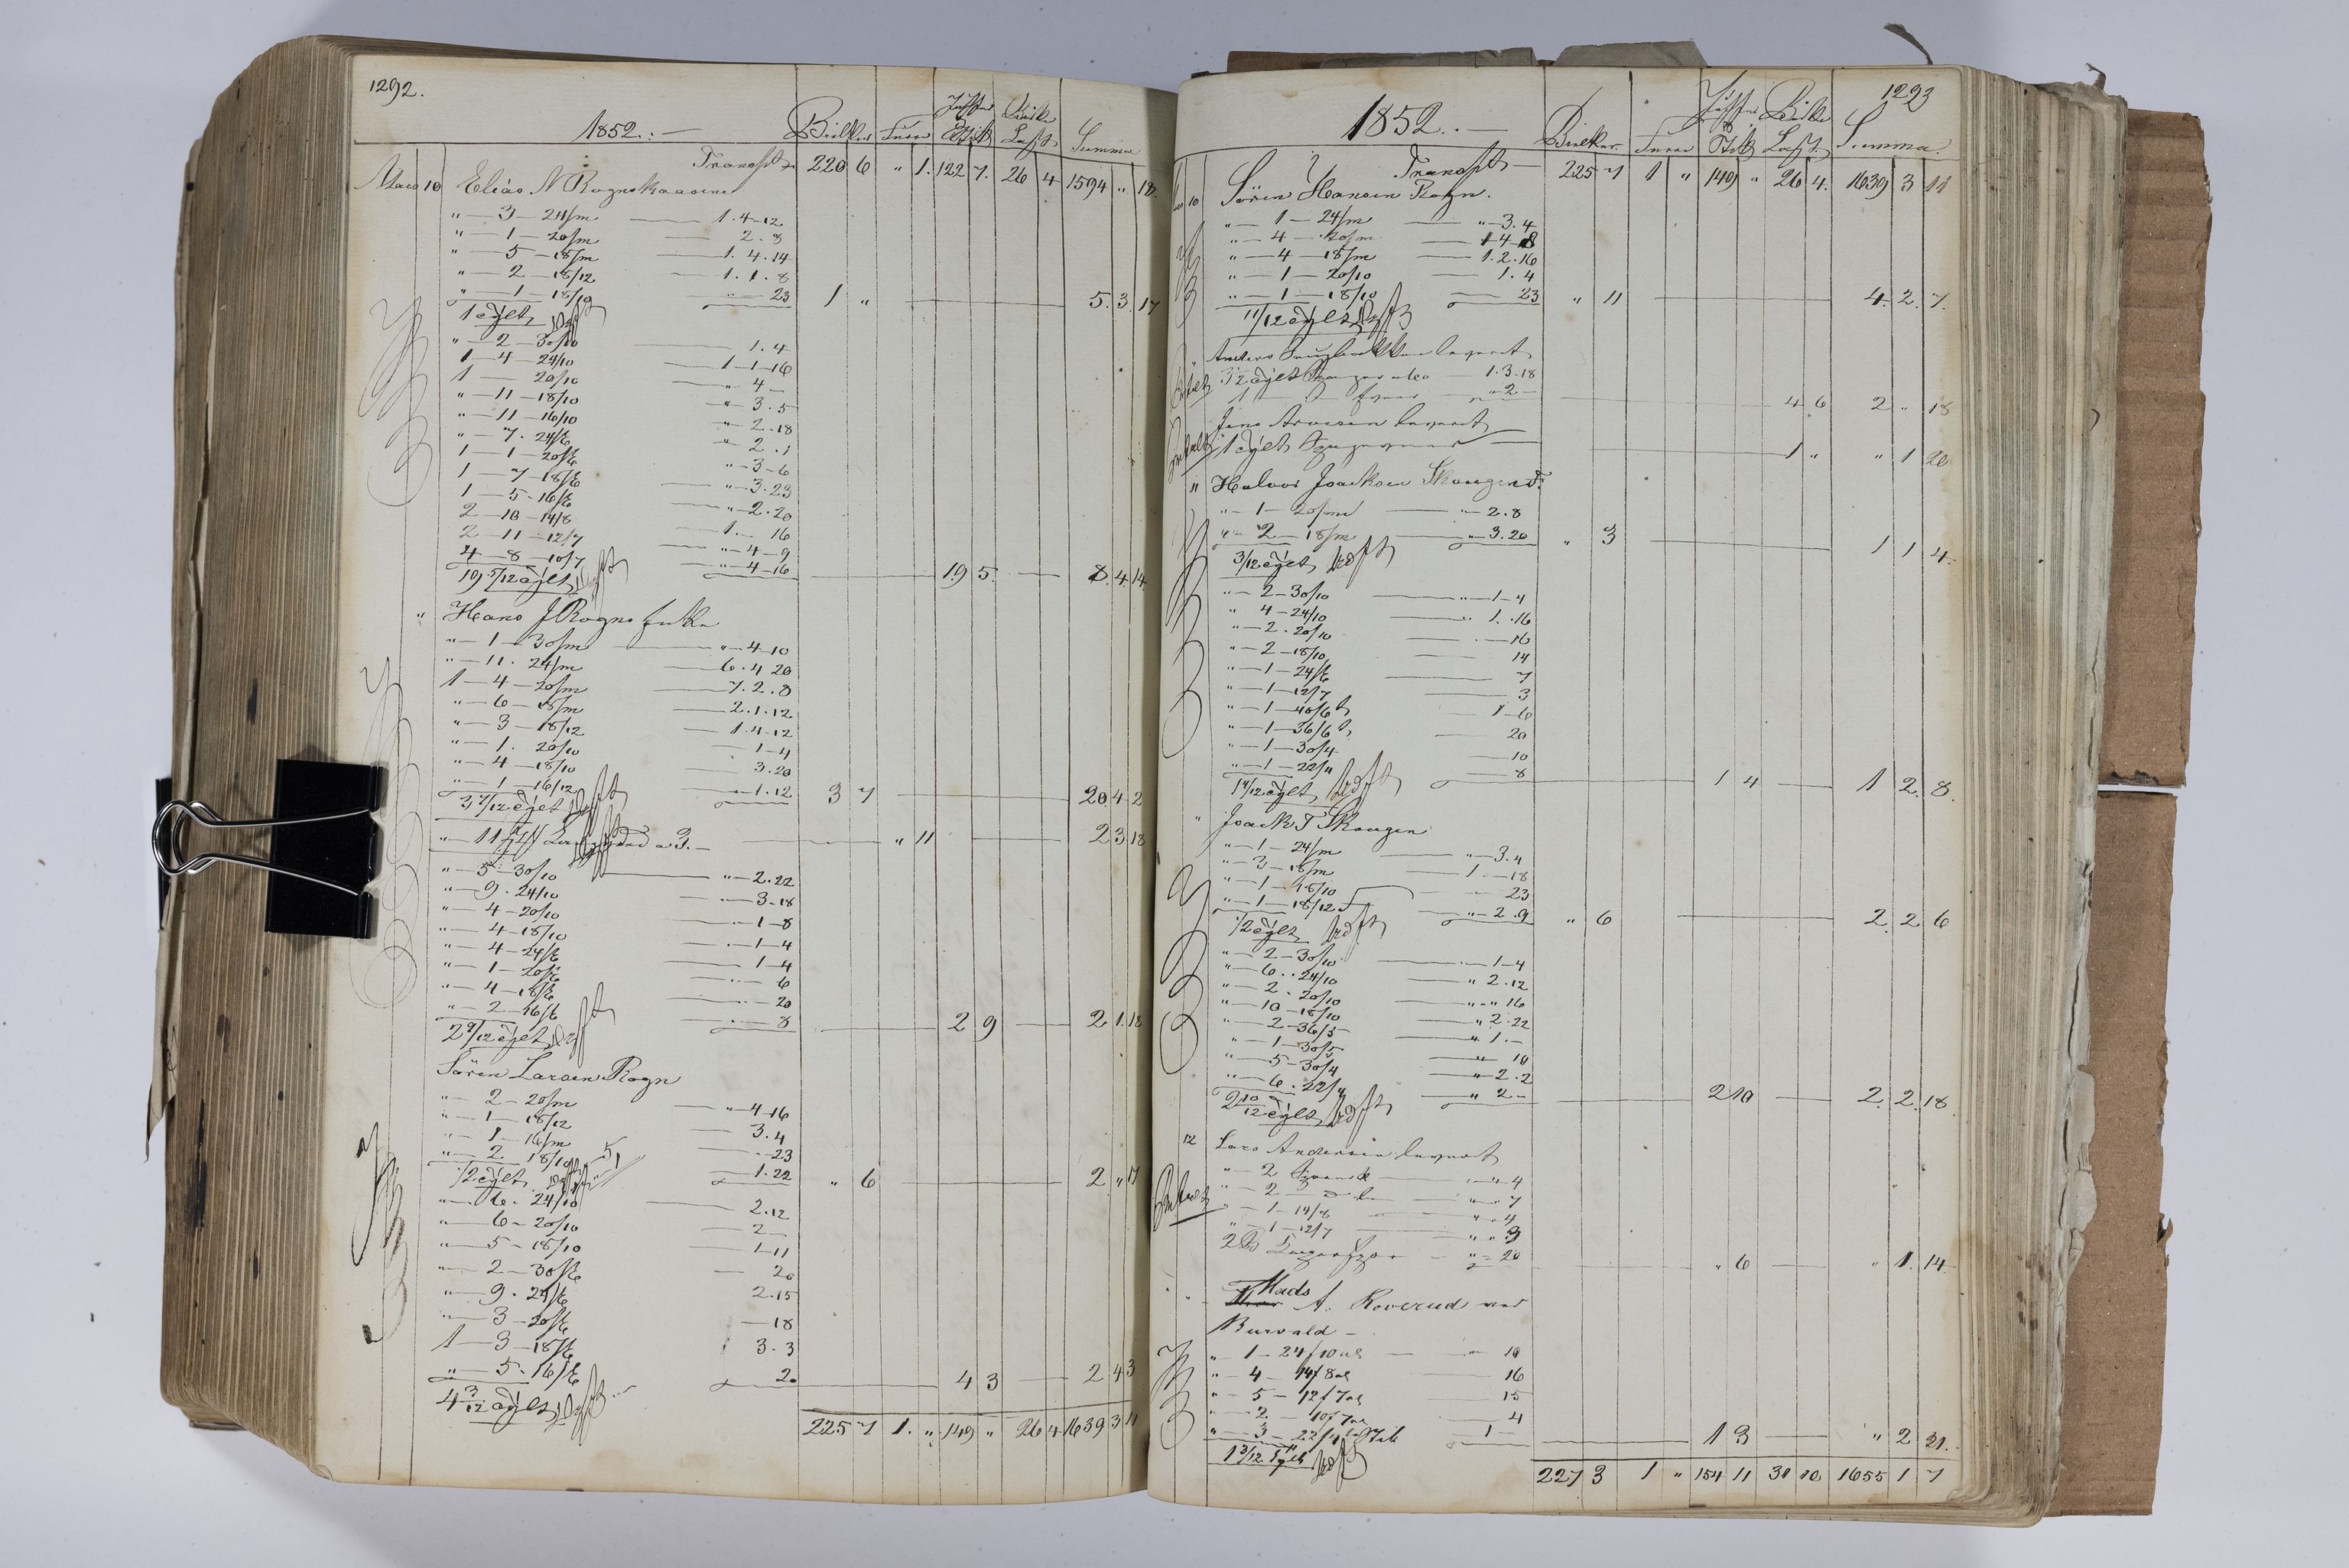 1292.
1852. : — Bielker Furu Laft. Summa
Transpt 220 6 " 1. 122 7. 26 4 1594 " 18.
Mars 10 Elias N Rognskaasene
" — 3 — 24/m — 1. 4-12
" — 1 — 20/m — 2. 8
" — 5 — 18/m — 1. 4. 14
" — 2 — 18/12 — 1. 1. 8
" — 1 — 18/10 — " — 23 1 " 5. 3. 17
1 tylt
" — 2 — 30/10 — 1. 4
1 — 4 — 24/10 — 1-1-16
1 — 20/10 — " 4 —
" — 11 — 18/10 — " 3. 5
" — 11 — 16/10 — " 2. 18
" — 7. 24/8 — " 2. 1
1 — 1 — 20/8 — " 3-6
1 — 7 — 18/8 — " — 3. 23
1 — 5 — 16/8 — " — 2. 20
2 — 10 — 14/8 — 1. — 16
2 — 11 — 12/7 — " — 4 — 9
4 — 8 — 10/7 — " — 4 — 16
19 5/12 tylt 19 5. 8. 4. 14.
" Hans J Rogns
" — 1 — 30/m — " — 4-10
" — 11. 24/m — 6. 4 20
1 — 4 — 20/m — 7. 2. 8
" — 6 — 18/m — 2. 1. 12
" — 3 — 18/12 — 1. 4-12
" — 1. 20/10 — 1-4
" — 4 — 18/10 — 3. 20
" — 1 — 16/12 — " 1. 12
3 7/12 tylt 3 7 20 4 2
" — 11 a 3. — " 11 2 3 18
" — 5 — 30/10 — " — 2. 22
" — 9. 24/10 — 3-18
" — 4 — 20/10 — 1-8
" — 4 — 18/10 — 1-4
" — 4 — 24/8 — 1-4
" — 1 — 20/8 — 6
" — 4 — 18/8 — 20
" — 2 — 16/8 — 8
2 9/12 tylt 2 9 2 1. 18
Sören Larsen Rogn
" — 2 — 20/m — " — 4-16
" — 1 — 18/12 — 3. 4
" — 1 — 16/m — 23
" — 2 18/10 — 1. 22
1/2 tylt " 6 2 " 17
" — 6. 24/10 — 2. 12
" — 6 — 20/10 — 2 —
" — 5 — 18/10 — 1-11
" — 2 — 30/8 — 20
" — 9. 24/8 — 2. 15
" — 3 — 20/8 — 18
1 — 3 — 18/8 — 3. 3
" — 5 — 16/8 — 20
4 3/12 tylt 4 3 2 4 3
225 7 1. " 149 " 26 4 1639 3 11
1293
1852. . — Bielker. Furu Laft. Summa.
Transpt — 225 7 1 " 149 " 26 4. 1639 3 11
10 Sören Hansen Rogn.
" — 1 — 24/m — " — 3. 4
" — 4 — 20/m — 1 4-8
" — 4 — 18/m — 1. 2. 16
" — 1 — 20/10 — 1. 4
" — 1 — 18/10 — 23 " 11 4. 2. 7.
11/12 tylt
" Anders levert
3 1/2 tylt — 1. 3-18
1 — " 2 — 4 6 2 " 18
Jens Arvesen levert
1 tylt 1 " " 1 20
" Halvor Joacksen Skougen
" — 1 — 20/m — " — 2. 8
" — 2 — 18/m — " 3. 20 " 3 1 1 4.
3/12 tylt
" — 2 — 30/10 — " — 1-4
" 4 — 24/10 — 1. . 16
" — 2. 20/10 — 16
" — 2 — 18/10 — 14
" — 1 — 24/8 — 7
" — 1 — 12/7 — 3
" — 1 — 40/6 — 1-6
" — 1 — 36/6 — 20
" — 1 — 30/4 — 10
" — 1 — 22/4 — 8
1 4/12 tylt 1 4 1 2. 8.
" Joack T Skougen
" — 1 — 24/m — " — 3. 4
" — 3 — 18/m — 1 — 18
" — 1 — 18/10 — 23
" — 1 — 18/12 — " — 2. 9 " 6 2. 2 6
1/2 tylt
" — 2 — 30/10 — 1-4
" — 6. . 24/10 — " 2. 12
" — 2. 20/10 — " " 16
" — 10 — 18/10 — " 2. 22
" — 2 — 36/5 — " 1. —
" — 1 — 30/5 — " 10
" — 5 — 30/4 — " 2. 2
" — 6. 22/4 — " 2 —
2 10/12 tylt 2 10 2. 2. 18.
12 Lars Andersen levert
" — 2 — " " 4
" — 2 — " " 7
" — 1 — 14/8 — " " 4
" — 1 — 12/7 — " " 3
2 — " " 20 " 6 " 1. 14
" Mads A. Roverud ved
Burvald —
" 1 — 24/10 al — " 10
" 4 — 14/8 al — 16
" 5 — 12/7 al — 15
" 2 — 10/7 al — 4
" 3 — 22/4 — 1 —
1 3/12 Tylt 1 3 " 2 21.
227 3 1 " 154 11 31 10 1655 1 7